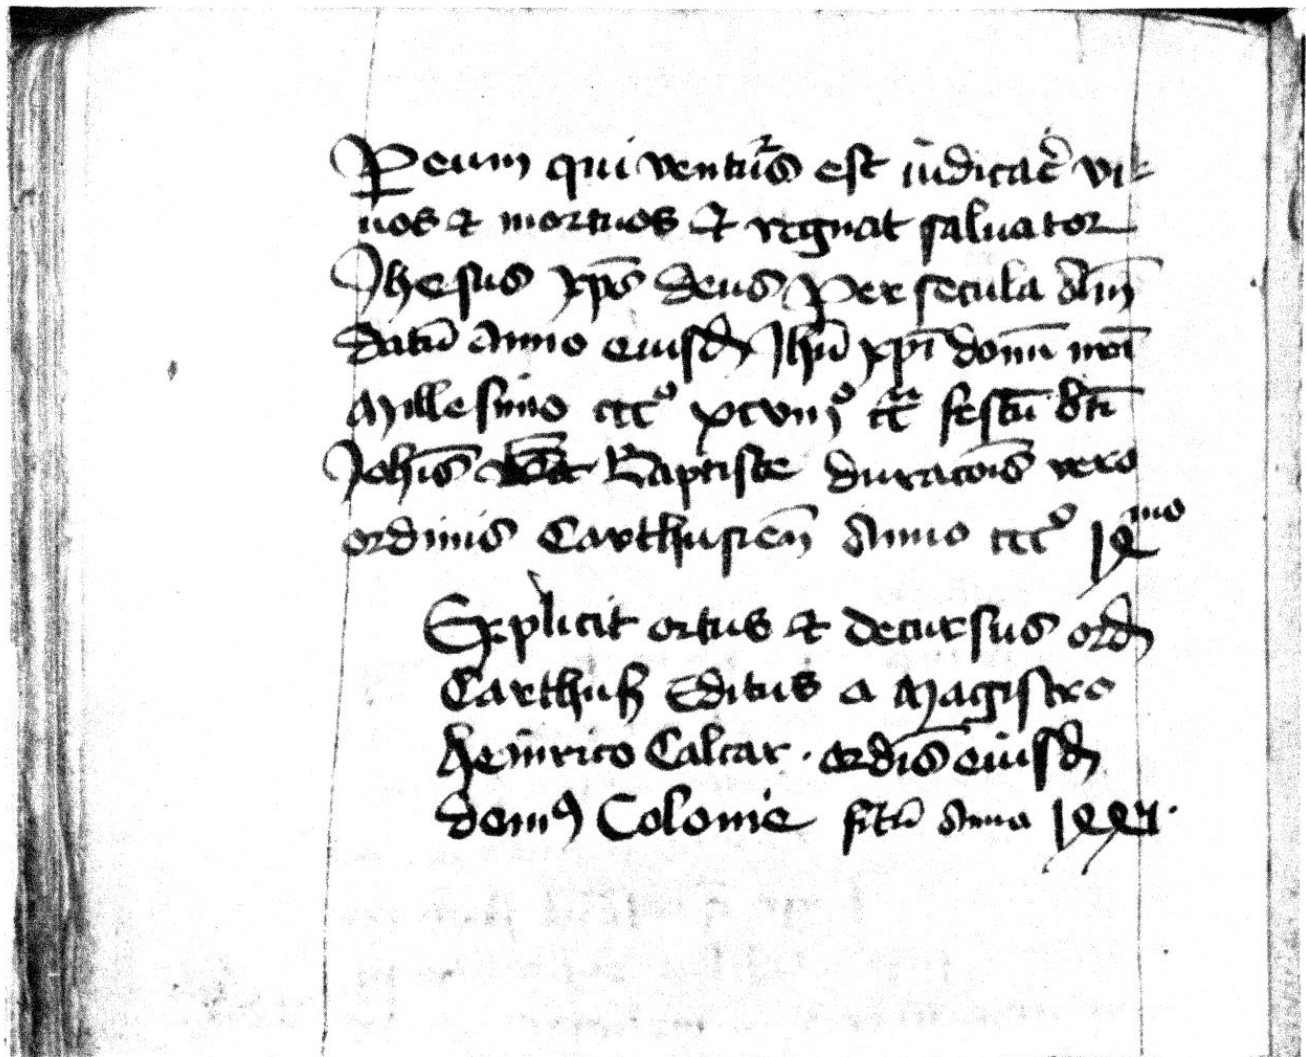 Per eum qui venturus est iudicare vi-
uos et mortuos et regnat saluator
Jhesus xps deus Per secula Am
datu Anno eiusd Jhu xpi domi nri
Millesimo ccc° xcviij° circa festu bti
Johis Baptiste duracois vero
ordinis Carthusien Anno ccc° xmo
Explicit ortus et decursus ord
Carthus Editus a Magistro
Heinrico Calcar . ordis eiusd
domus Colonie sctu Anno